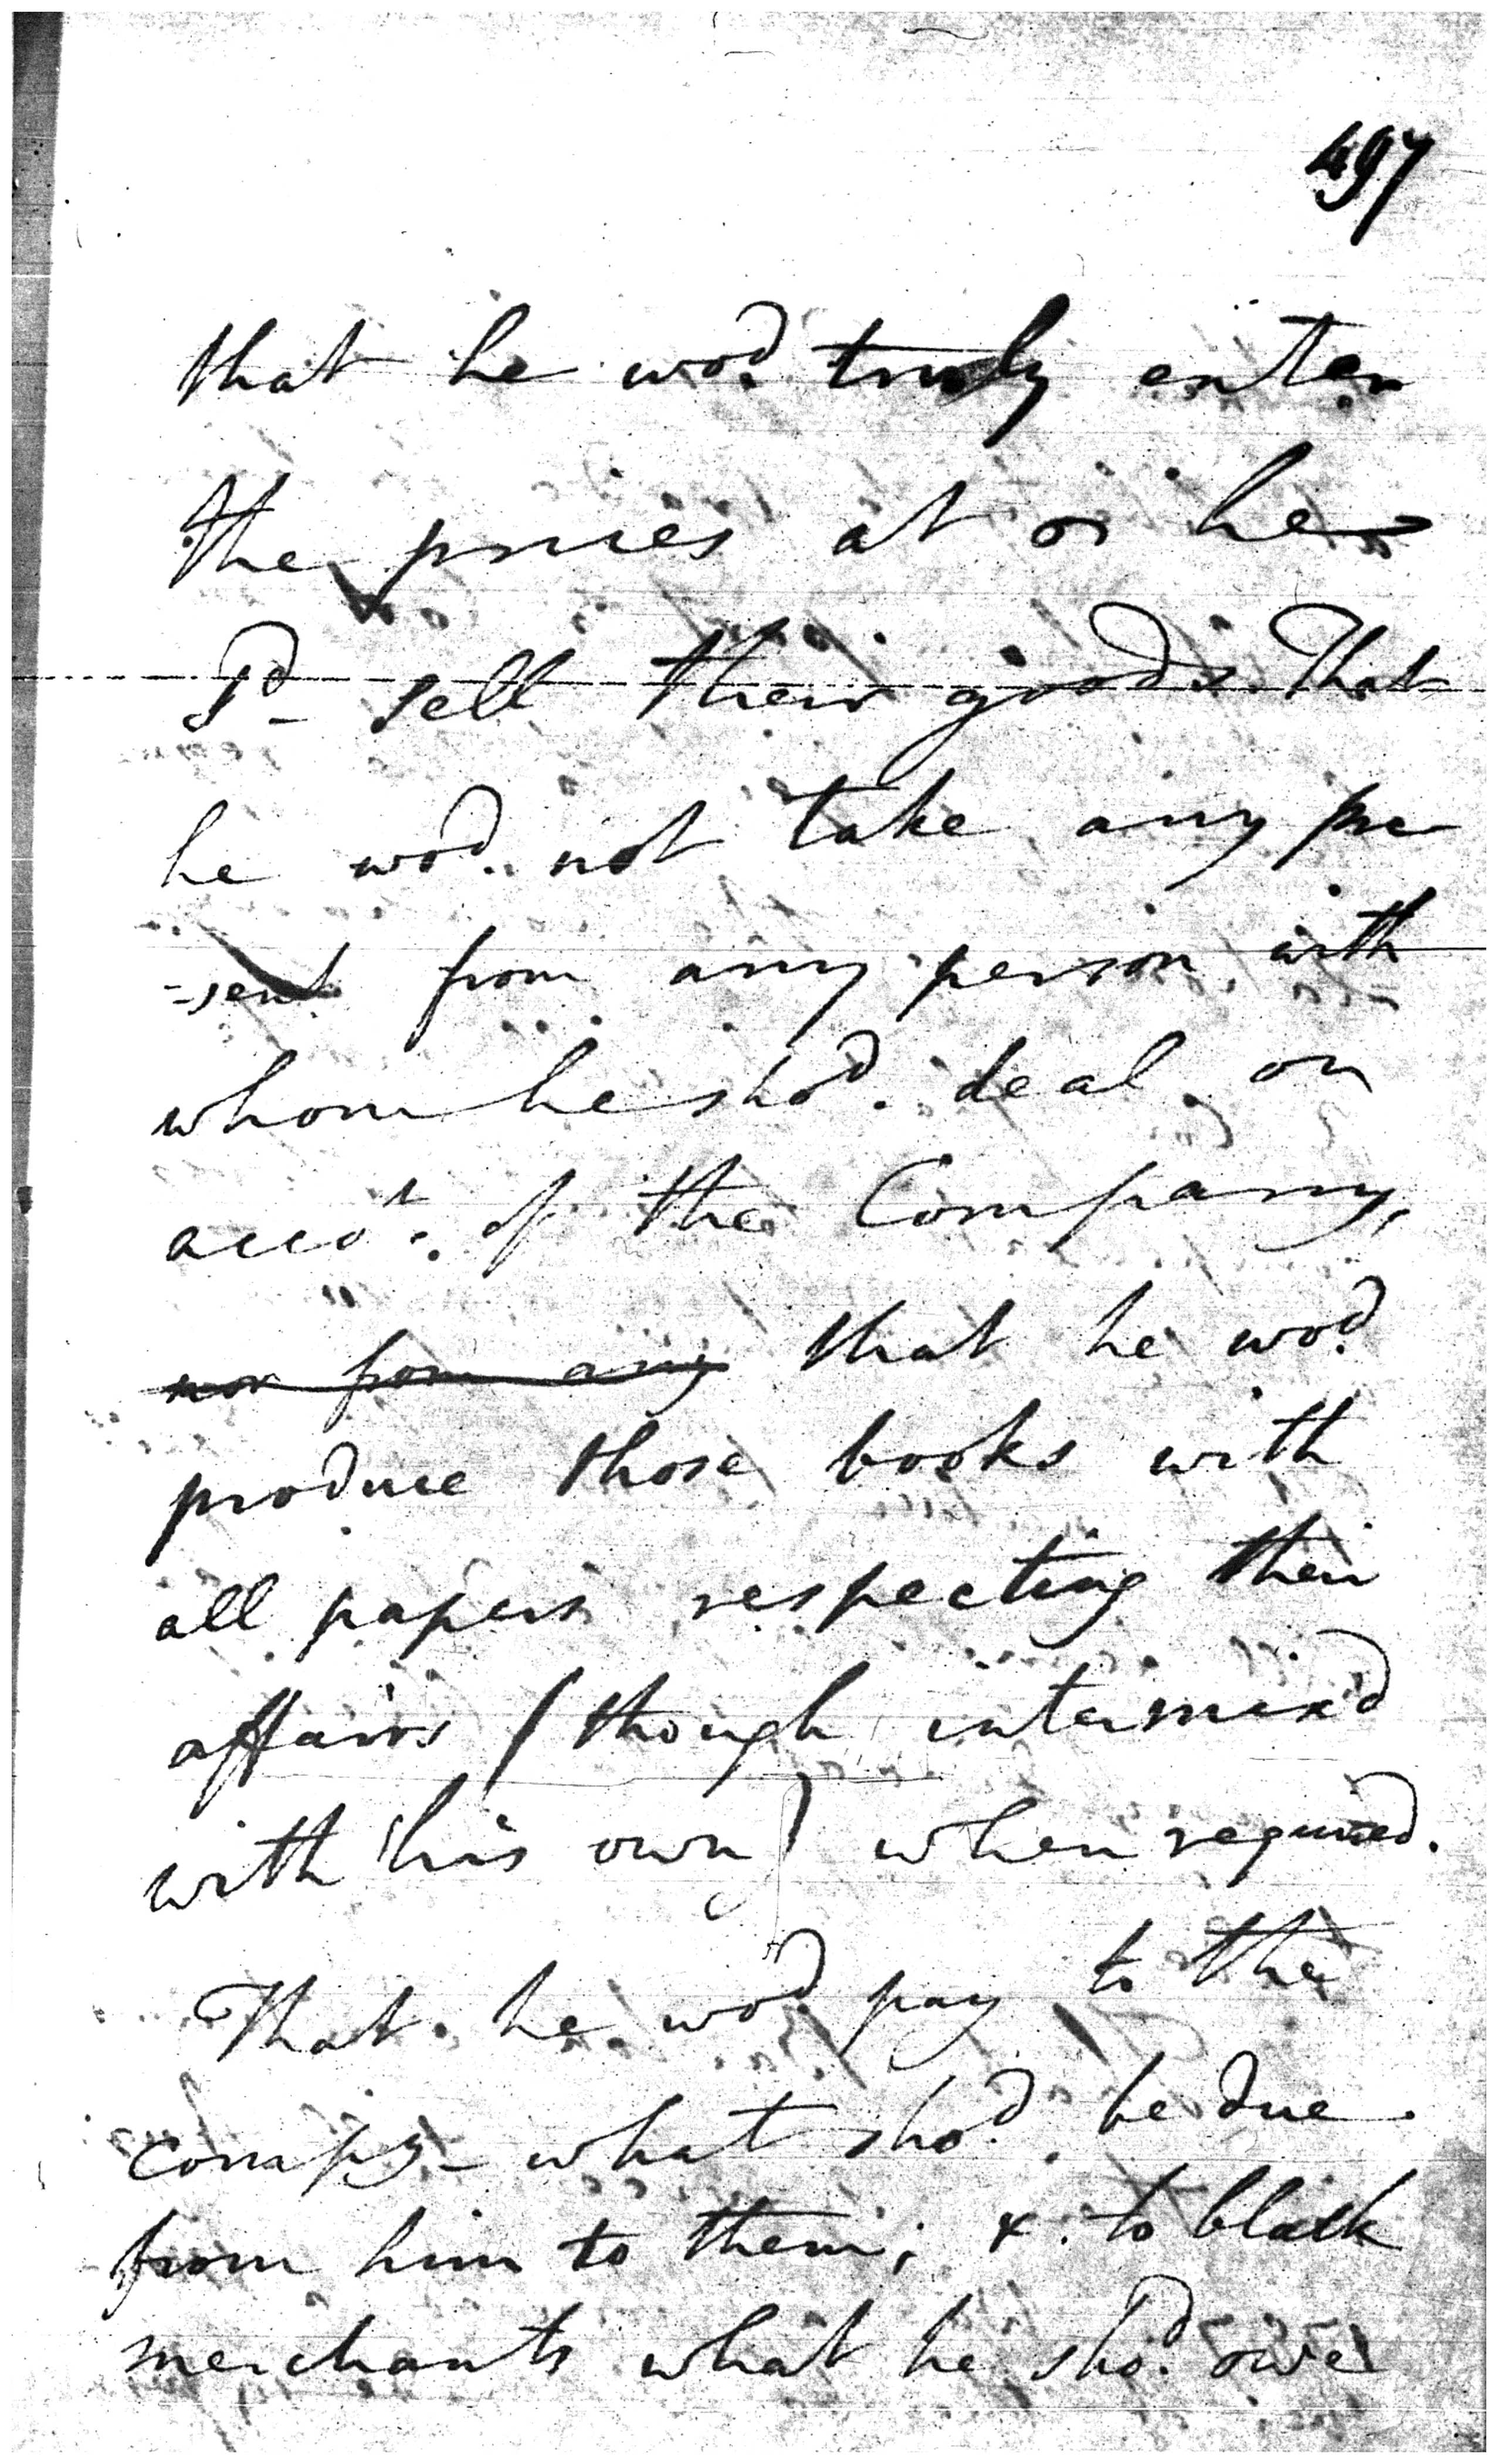 497
that he wod. truly enter
the prices at  he
Sd sell their goods. That
he wod. not take any pre
-sent from any person with
whom he shod. deal on
accot. of the Company,
nor from any that he wod.
produce those books with
all papers respecting their
affairs (though intermix'd
with his own) when required.
That he wod pay to the
Compy- what shod. be due
from him to them; & to black
merchants what he shod. owe